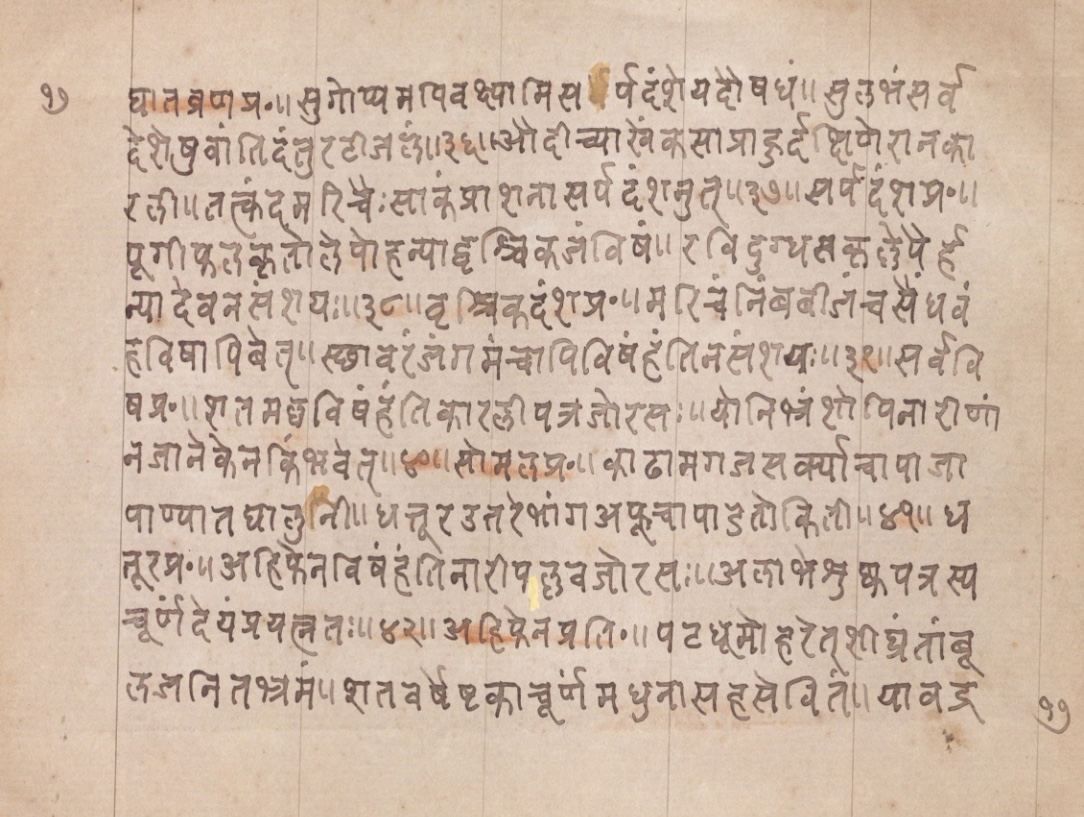 १७ घातव्रणप्र॰॥ सुगोप्यमपिवक्ष्यामिसर्पदंशेयदौषधं॥ सुलभंसर्व
देशेषुवांतिदंतुरटीजलं॥३६॥औदीच्यारेवंकसाप्राहुर्दक्षिणेरानका
रली॥तत्कंदमरिचैःसाकंप्राशनात्सर्पदंशनुत्॥३७॥सर्पदंशप्र॰॥
पूगीफलकृतोलेपोहन्याद्वृश्चिकजंविषं॥रविदुग्धसकृल्लेपैर्ह
न्यादेवनसंशयः॥३८॥वृश्चिकदंशप्र॰॥मरिचंनिंबबीजंचसैंधवं
हविषापिबेत्॥स्छावरंजंगमंचापिविषंहंतिनसंशयः॥३९॥सर्ववि
षप्र॰॥शतमल्लविषंहंतिकारलीपत्रजोरसः॥योनिभ्रंशोपिनारीणां
नजानेकेनकिंभवेत्॥४०॥सोमलप्र॰॥काढामगजसर्क्याचापाजा
पाण्यातघालुनी॥धत्तूरउतरेभांगअफूचापाडतोकिती॥४१॥ध
त्तूरप्र॰॥अहिफेनविषंहंतिनारीपल्लवजोरसः॥अलाभेशुष्कपत्रस्य
चूर्णंदेयंप्रयत्नतः॥४२॥अहिफेनप्रति॰॥पटधूमोहरेत्शीघ्रंतांबू
लजनितभ्रमं॥शतवर्षेष्टकाचूर्णंमधुनासहसेवितं॥यावद्द्र १७